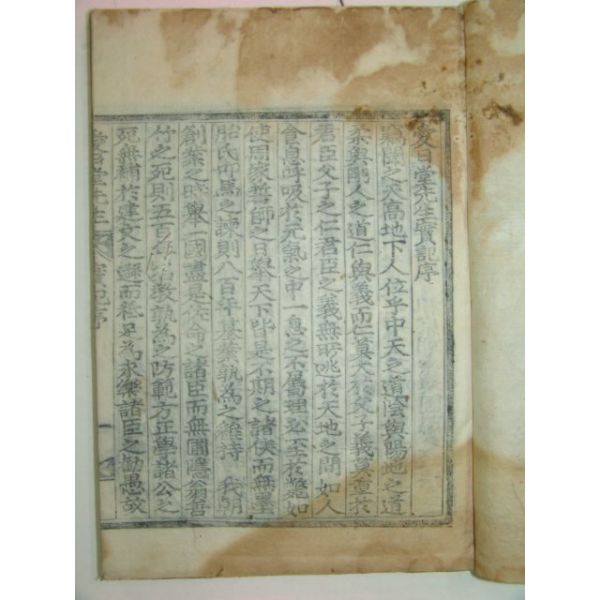 愛日堂先生實記序
竊聞之天高地下人位乎中天之道陰與陽地之道
柔與剛人之道仁與義而仁莫大於父子義莫重於
君臣父子之仁君臣之義無所逃於天地之間如人
會息呼吸於元氣之中一息之不屬理必至於斃如
使周家誓師之日擧天下皆是不期之諸侯而無墨
胎氏叩馬之諫則八百年基業孰爲之維持 我朝
創業之時擧一國盡是佐命之諸臣而無圃隱翁苦
竹之死則五百年名敎孰爲之防範方正學諸公之
死無補於建文之遜而秪足爲永樂諸臣之勸愚故
愛日堂先生 實記序 一